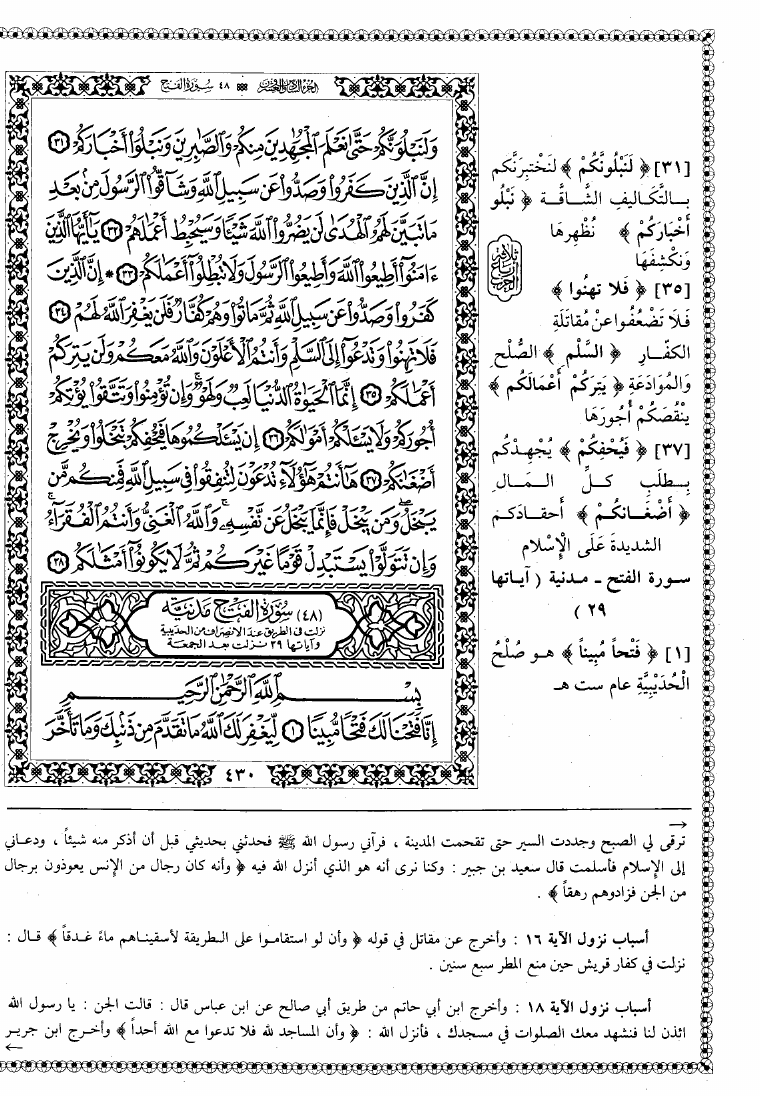 ٤٨ سورة الفتح
وَلَنَبْلُوَنَّكُمْ حَتَّىٰ نَعْلَمَ ٱلْمُجَٰهِدِينَ مِنكُمْ وَٱلصَّٰبِرِينَ وَنَبْلُوَا۟ أَخْبَارَكُمْ ﴿٣١﴾
إِنَّ ٱلَّذِينَ كَفَرُوا۟ وَصَدُّوا۟ عَن سَبِيلِ ٱللَّهِ وَشَآقُّوا۟ ٱلرَّسُولَ مِنۢ بَعْدِ
مَا تَبَيَّنَ لَهُمُ ٱلْهُدَىٰ لَن يَضُرُّوا۟ ٱللَّهَ شَيْـًٔا وَسَيُحْبِطُ أَعْمَٰلَهُمْ ﴿٣٢﴾ يَٰٓأَيُّهَا ٱلَّذِينَ
ءَامَنُوٓا۟ أَطِيعُوا۟ ٱللَّهَ وَأَطِيعُوا۟ ٱلرَّسُولَ وَلَا تُبْطِلُوٓا۟ أَعْمَٰلَكُمْ ﴿٣٣﴾ * إِنَّ ٱلَّذِينَ
كَفَرُوا۟ وَصَدُّوا۟ عَن سَبِيلِ ٱللَّهِ ثُمَّ مَاتُوا۟ وَهُمْ كُفَّارٌ فَلَن يَغْفِرَ ٱللَّهُ لَهُمْ ﴿٣٤﴾
فَلَا تَهِنُوا۟ وَتَدْعُوٓا۟ إِلَى ٱلسَّلْمِ وَأَنتُمُ ٱلْأَعْلَوْنَ وَٱللَّهُ مَعَكُمْ وَلَن يَتِرَكُمْ
أَعْمَٰلَكُمْ ﴿٣٥﴾ إِنَّمَا ٱلْحَيَوٰةُ ٱلدُّنْيَا لَعِبٌ وَلَهْوٌ وَإِن تُؤْمِنُوا۟ وَتَتَّقُوا۟ يُؤْتِكُمْ
أُجُورَكُمْ وَلَا يَسْـَٔلْكُمْ أَمْوَٰلَكُمْ ﴿٣٦﴾ إِن يَسْـَٔلْكُمُوهَا فَيُحْفِكُمْ تَبْخَلُوا۟ وَيُخْرِجْ
أَضْغَٰنَكُمْ ﴿٣٧﴾ هَٰٓأَنتُمْ هَٰٓؤُلَآءِ تُدْعَوْنَ لِتُنفِقُوا۟ فِى سَبِيلِ ٱللَّهِ فَمِنكُم مَّن
يَبْخَلُ وَمَن يَبْخَلْ فَإِنَّمَا يَبْخَلُ عَن نَّفْسِهِۦ وَٱللَّهُ ٱلْغَنِىُّ وَأَنتُمُ ٱلْفُقَرَآءُ
وَإِن تَتَوَلَّوْا۟ يَسْتَبْدِلْ قَوْمًا غَيْرَكُمْ ثُمَّ لَا يَكُونُوٓا۟ أَمْثَٰلَكُم ﴿٣٨﴾
(٤٨) سورة الفتح مدنية
نزلت في الطريق عند الانصراف من الحديبية
وآياتها ٢٩ نزلت بعد الجمعة
بِسْمِ ٱللَّهِ ٱلرَّحْمَٰنِ ٱلرَّحِيمِ
إِنَّا فَتَحْنَا لَكَ فَتْحًا مُّبِينًا ﴿١﴾ لِّيَغْفِرَ لَكَ ٱللَّهُ مَا تَقَدَّمَ مِن ذَنۢبِكَ وَمَا تَأَخَّرَ
٤٣٠
[٣١] ﴿ لَنَبْلُونَّكُمْ ﴾ لَنَخْتَبِرَنَّكم
بـالتَّكـاليفِ الشَّـاقَّـة ﴿ نَبْلُو
أَخْبَارَكُمْ ﴾ نُظْهِرهَا
وَنَكْشِفَهَا
[٣٥] ﴿ فَلَا تهنُوا ﴾
فَلَا تَضْعُفُوا عنْ مُقاتَلَةِ
الكفّـار ﴿ السَّلْم ﴾ الصُّلْحِ
وَالمُوَادَعَةِ ﴿ يَتِرَكُمْ أَعْمَالَكُم ﴾
يَنْقُصَكُمْ أُجُورَهَا
[٣٧] ﴿ فَيُحْفِكُمْ ﴾ يُجْهِدْكُم
بِـطَلَبِ كـلِّ الـمَـالِ
﴿ أَضْغَـانكُمْ ﴾ أحقـادَكـم
الشديدةَ عَلَى الْإِسْلام
سـورة الفتح ـ مـدنية ( آيـاتها
٢٩ )
[١] ﴿ فَتْحاً مُبِيناً ﴾ هـو صُلْحُ
الْحُدَيْبِيَّةِ عام ست هـ
ترقى لي الصبح وجددت السير حتى تقحمت المدينة ، فرآني رسول الله ﷺ فحدثني بحديثي قبل أن أذكر منه شيئاً ، ودعـاني
إلى الإسلام فأسلمت قال سعيد بن جبير : وكنا نرى أنه هو الذي أنزل الله فيه ﴿ وأنه كان رجال من الإنس يعوذون برجال
من الجن فزادوهم رهقاً ﴾ .
أسباب نزول الآية ١٦ : وأخرج عن مقاتل في قوله ﴿ وأن لو استقامـوا على الـطريقة لأسقينـاهم ماءً غـدقاً ﴾ قـال :
نزلت في كفار قريش حين منع المطر سبع سنين .
أسباب نزول الآية ١٨ : وأخرج ابن أبي حاتم من طريق أبي صالح عن ابن عباس قال : قالت الجن : يا رسول الله
ائذن لنا فنشهد معك الصلوات في مسجدك ، فأنزل الله : ﴿ وأن المساجد لله فلا تدعوا مع الله أحداً ﴾ وأخـرج ابن جريـر